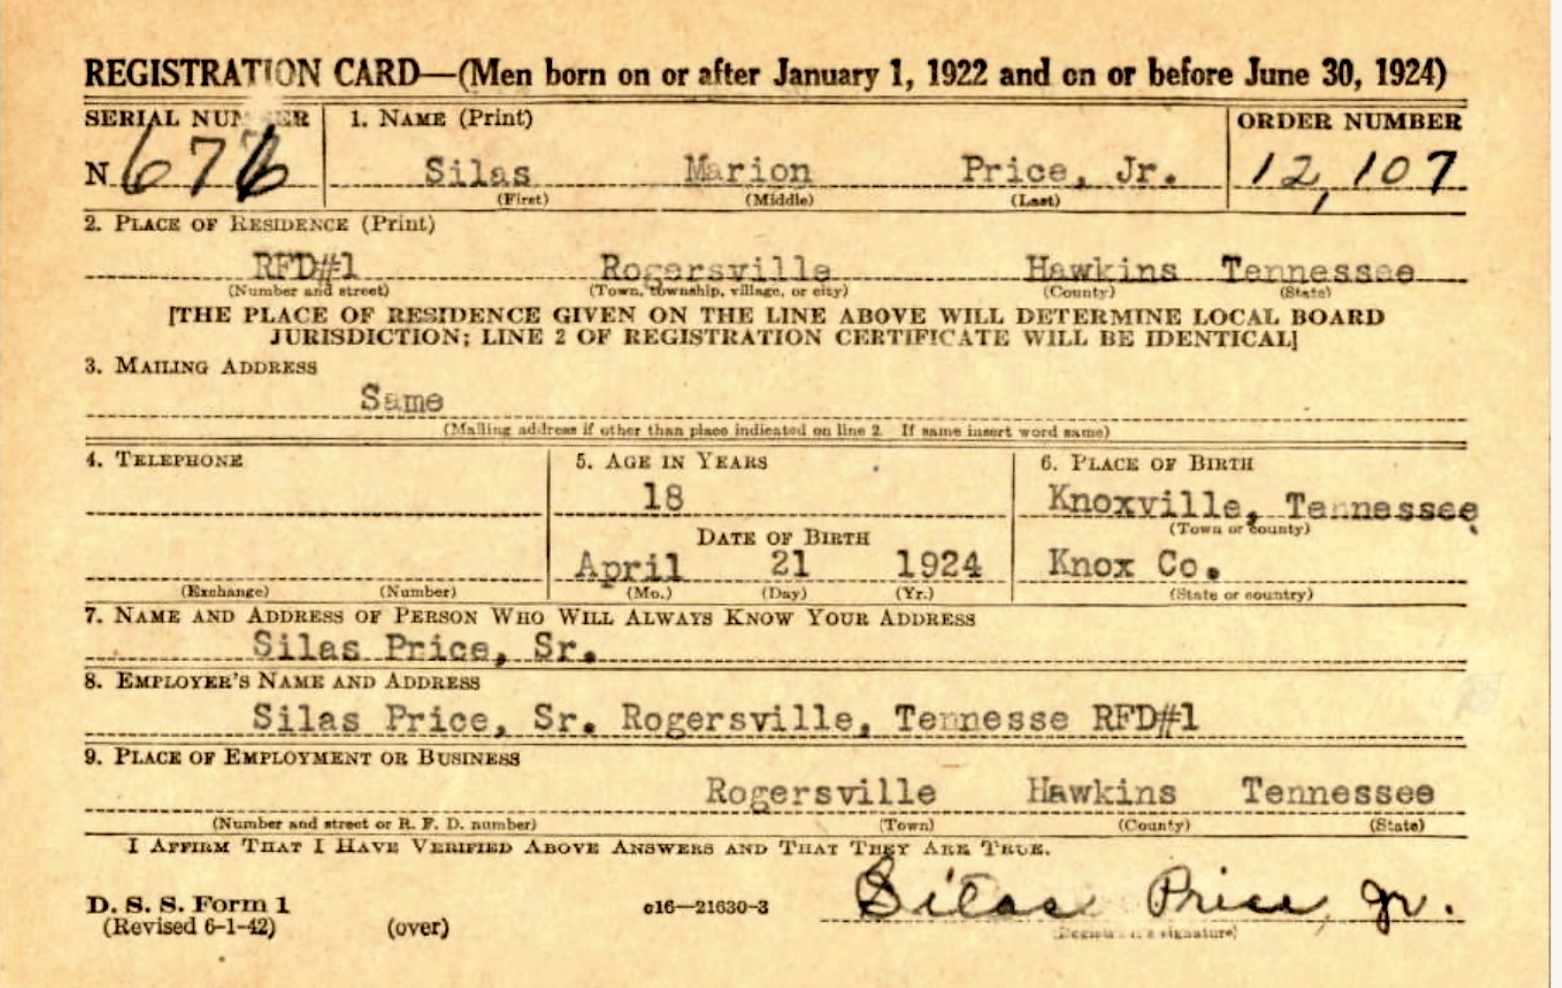 REGISTRATION CARD—(Men born on or after January 1, 1922 and on or before June 30, 1924)
SERIAL NUMBER 1. NAME (Print) ORDER NUMBER
N 676 Silas Marion Price, Jr. 12,107
(First) (Middle) (Last)
2. PLACE OF RESIDENCE (Print)
RFD#1 Rogersville Hawkins Tennessee
(Number and street) (Town, township, village, or city) (County) (State)
[THE PLACE OF RESIDENCE GIVEN ON THE LINE ABOVE WILL DETERMINE LOCAL BOARD
JURISDICTION; LINE 2 OF REGISTRATION CERTIFICATE WILL BE IDENTICAL]
3. MAILING ADDRESS
Same
(Mailing address if other than place indicated on line 2. If same insert word same)
4. TELEPHONE 5. AGE IN YEARS 6. PLACE OF BIRTH
18 Knoxville, Tennessee
(Town or county)
DATE OF BIRTH
April 21 1924 Knox Co.
(Exchange) (Number) (Mo.) (Day) (Yr.) (State or country)
7. NAME AND ADDRESS OF PERSON WHO WILL ALWAYS KNOW YOUR ADDRESS
Silas Price, Sr.
8. EMPLOYER'S NAME AND ADDRESS
Silas Price, Sr. Rogersville, Tennesse RFD#1
9. PLACE OF EMPLOYMENT OR BUSINESS
Rogersville Hawkins Tennessee
(Number and street or R. F. D. number) (Town) (County) (State)
I AFFIRM THAT I HAVE VERIFIED ABOVE ANSWERS AND THAT THEY ARE TRUE.
D. S. S. Form 1 c16—21630-3 Silas Price, Jr.
(Revised 6-1-42) (over) (Registrant's signature)